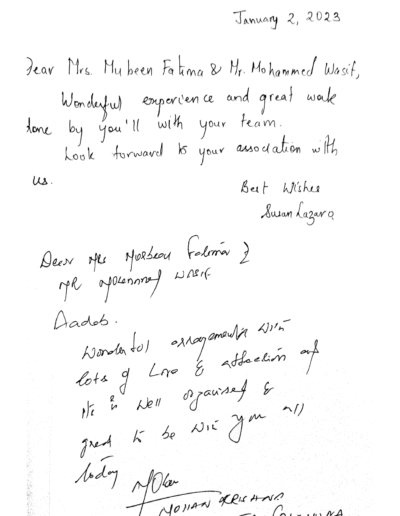 January 2, 2023
Dear Mrs. Mubeen Fatima & Mr. Mohammed Wasif,
Wonderful experience and great work
done by you'll with your team.
Look forward to your association with
us.
Best Wishes
Susan Lazara
Dear Mrs Fatima &
MR Wasif
Aadab.
Wonderful arrangements with
lots of Love & affection
its is well organised &
great to be with you all
today
MOHAN KRISHANA